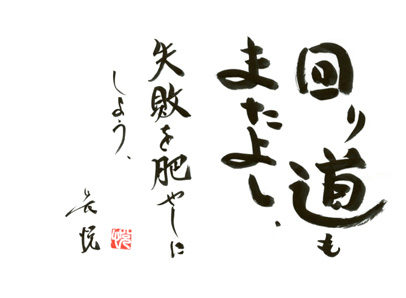 回り道も
またよし、
失敗を肥やしに
しよう、